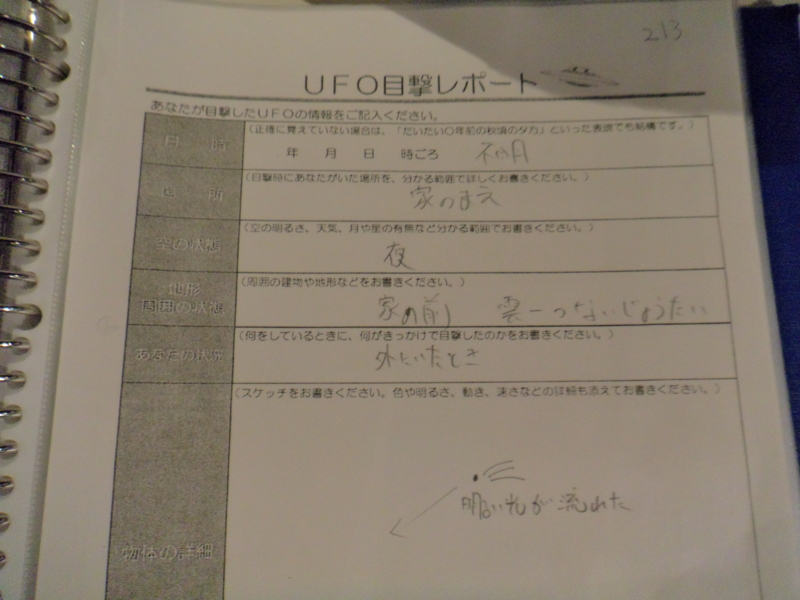 213
UFO目撃レポート
あなたが目撃したUFOの情報をご記入ください。
日時
(正確に覚えていない場合は、「だいたい〇年前の秋頃の夕方」といった表現でも結構です。)
年 月 日 時ごろ 不明
場所
(目撃時にあなたがいた場所を、分かる範囲で詳しくお書きください。)
家のまえ
空の状態
(空の明るさ、天気、月や星の有無など分かる範囲でお書きください。)
夜
地形
周囲の状態
(周囲の建物や地形などをお書きください。)
家の前 雲一つないじょうたい
あなたの状況
(何をしているときに、何がきっかけで目撃したのかをお書きください。)
外にいたとき
物体の詳細
(スケッチをお書きください。色や明るさ、動き、速さなどの詳細も添えてお書きください。)
明るい光が流れた